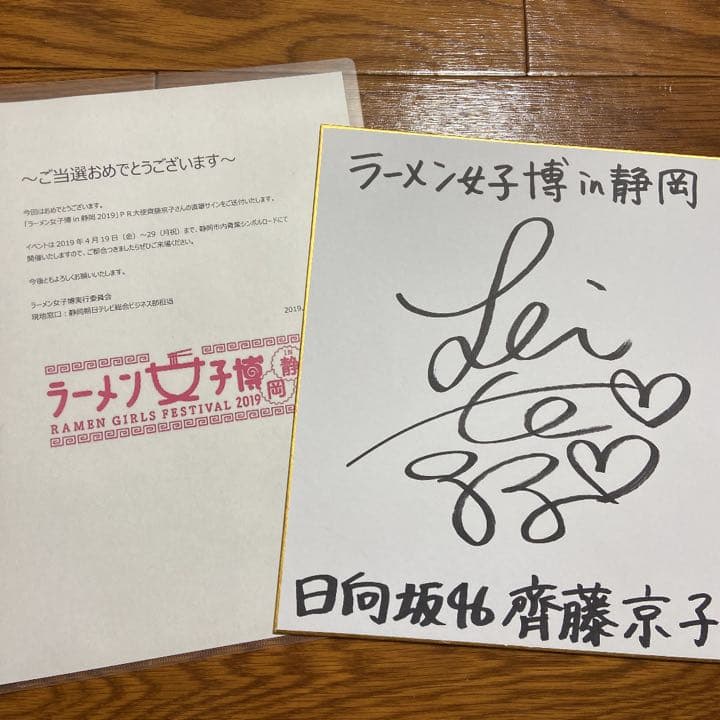 ～ご当選おめでとうございます～
今回はおめでとうございます。
「ラーメン女子博 in 静岡 2019」ＰＲ大使齊藤京子さんの直筆サインをご送付いたします。
イベントは 2019 年 4 月 19 日（金）～29（月祝）まで、静岡市内青葉シンボルロードにて
開催いたしますので、ご都合つきましたらぜひご来場ください。
今後ともよろしくお願いいたします。
ラーメン女子博実行委員会
現地窓口：静岡朝日テレビ総合ビジネス部担当
2019.
ラーメン女子博 IN 静岡
RAMEN GIRLS FESTIVAL 2019
ラーメン女子博 in 静岡
日向坂46 齊藤京子